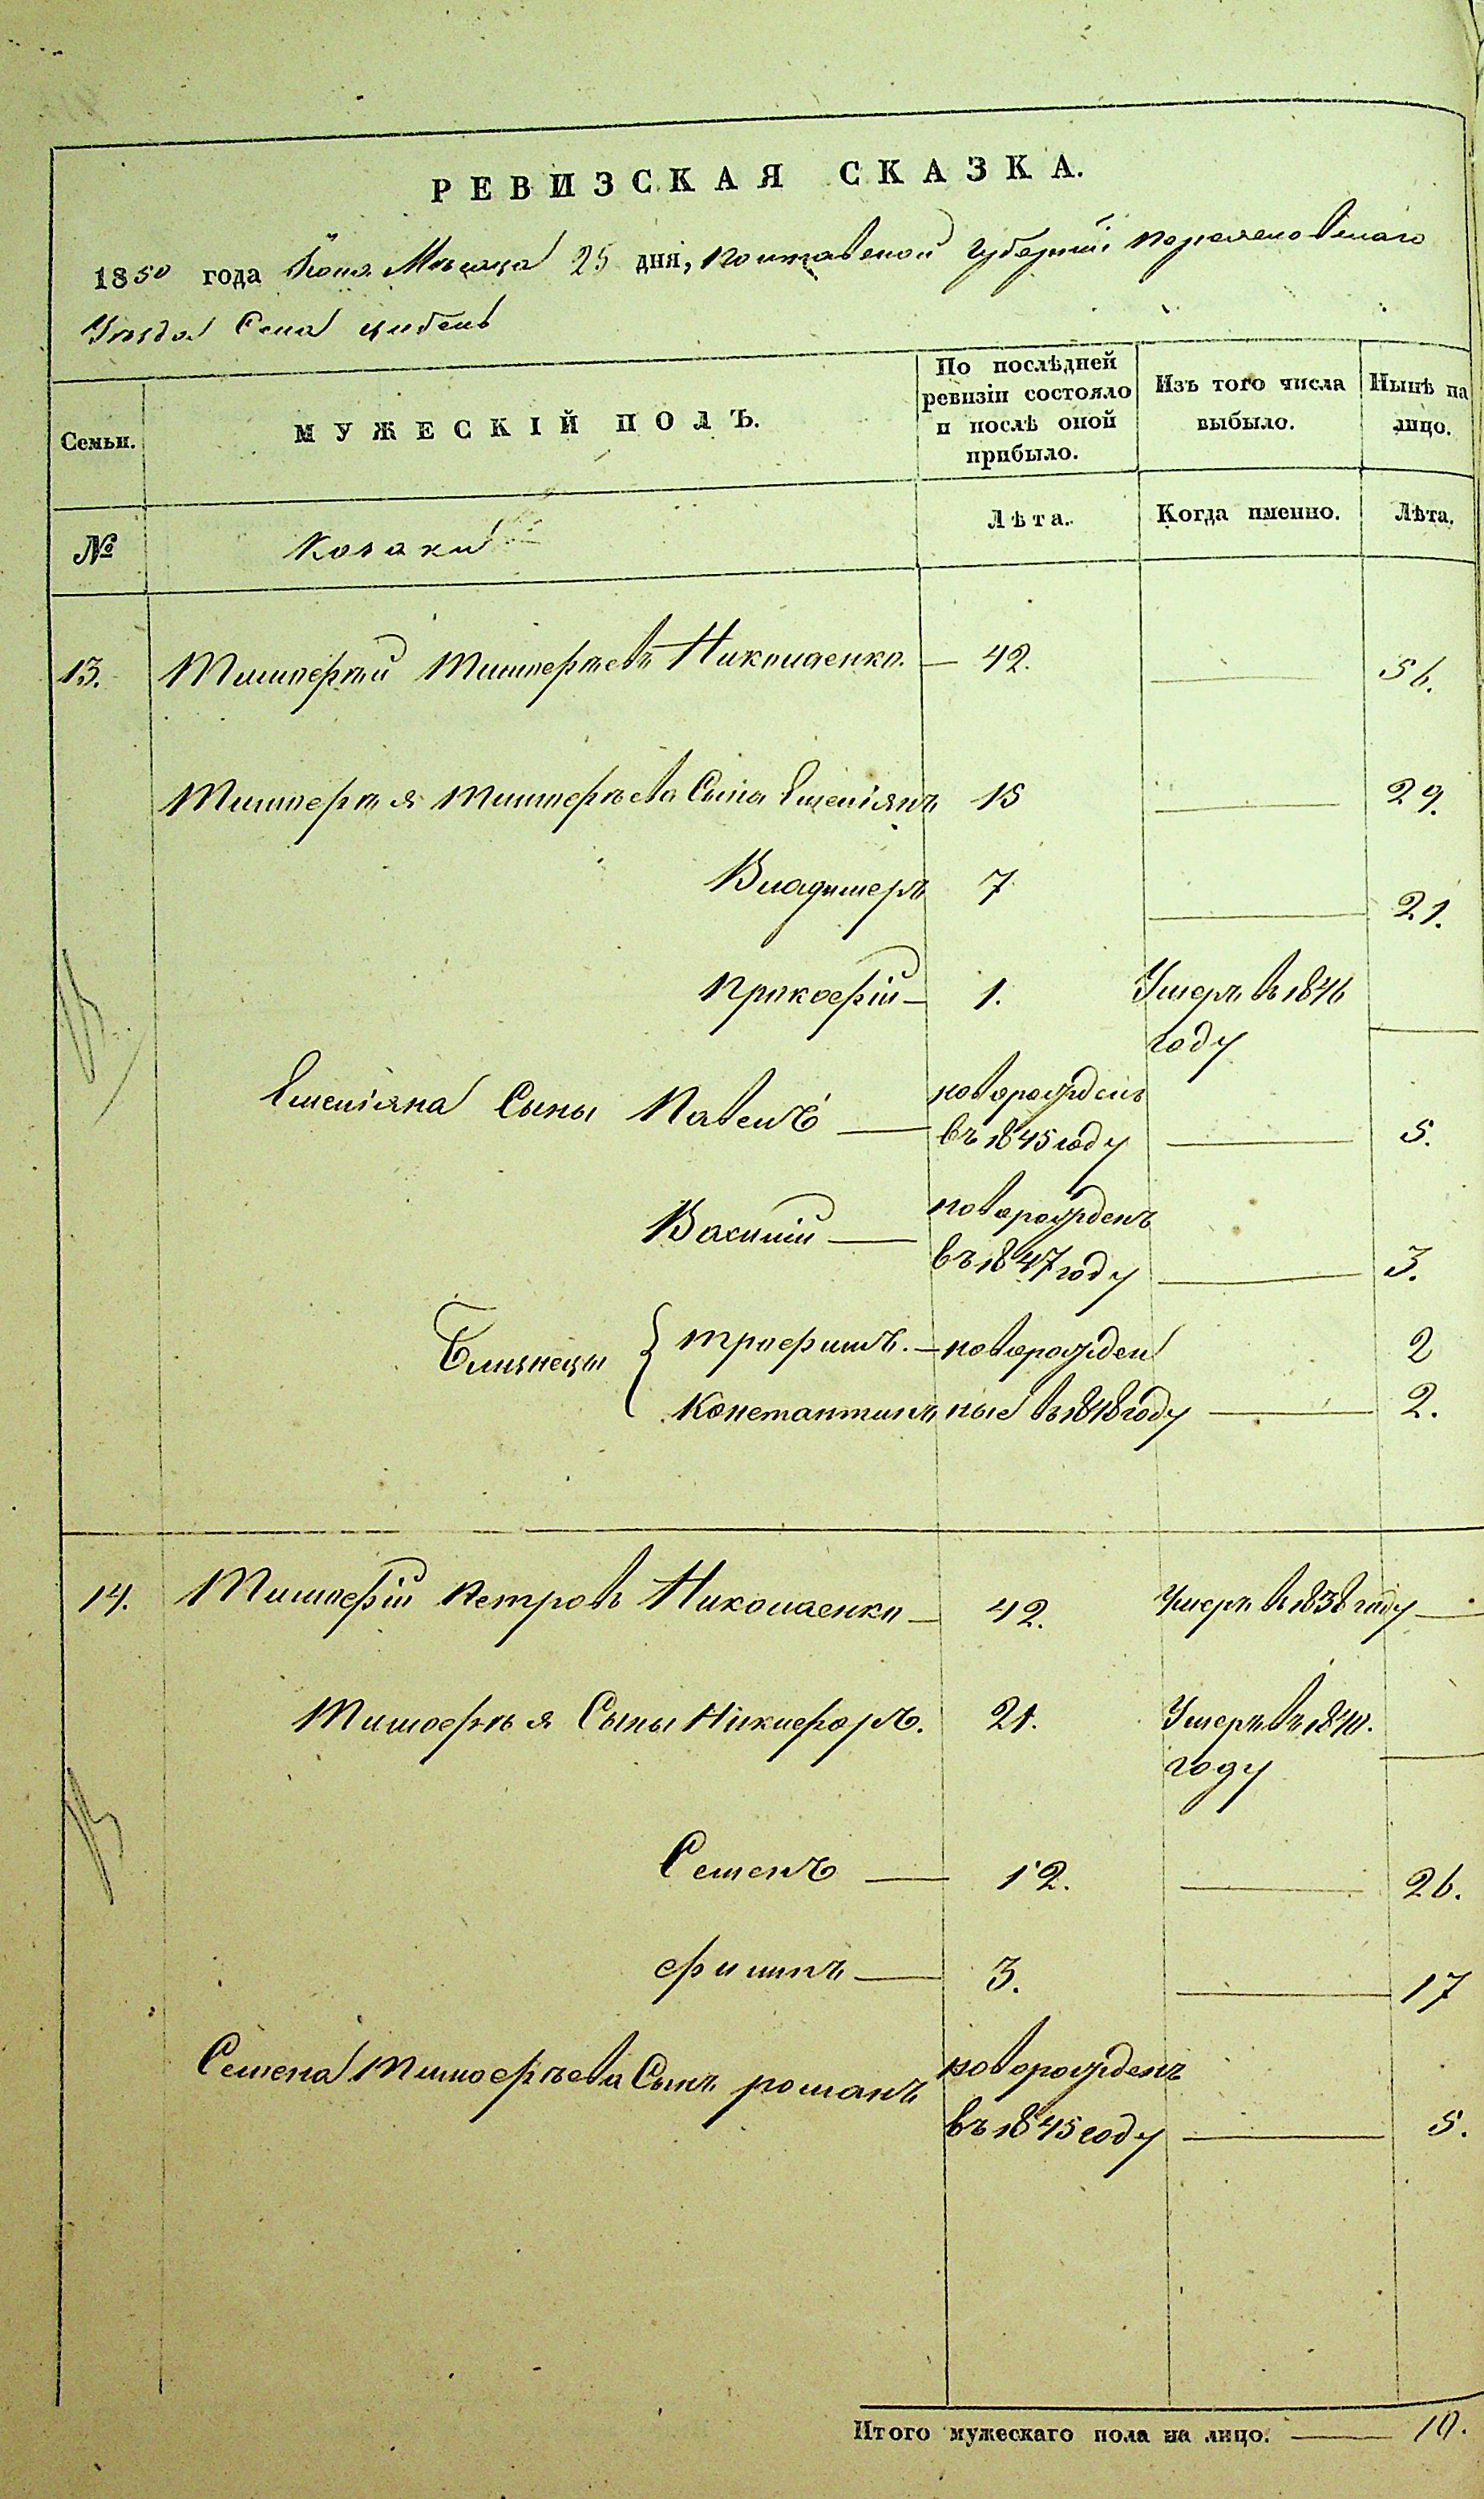 РЕВИЗСКАЯ СКАЗКА.
1850 года Іюня Мѣсяца 25 дня, Полтавской Губерніи Переяславскаго
Уѣзда Села Цибель
Семьи.
МУЖЕСКІЙ ПОЛЪ.
По послѣдней ревизіи состояло и послѣ оной прибыло.
Изъ того числа выбыло.
Нынѣ на лицо.
№ Козаки Лѣта. Когда именно. Лѣта.
13. Тимофѣй Тимофѣевъ Николаенко — 42. — 56.
Тимофѣя Тимофѣева Сыны Емеліянъ 15 — 29.
Владимеръ 7 — 21.
Прокофій — 1. Умеръ въ 1846
году —
Емеліяна Сыны Павелъ — новорожденъ
въ 1845 году — 5.
Василій — новорожденъ
въ 1847 году — 3.
Близнецы { Трофимъ. — новорожден 2
Константинъ ные въ 1848 году — 2.
14. Тимофій Петровъ Николаенко — 42. Умеръ въ 1838 году —
Тимофѣя Сыны Никифоръ. 21. Умеръ въ 1840.
году —
Семенъ — 12. — 26.
Филипъ — 3. — 17
Семена Тимофѣева Сынъ Романъ новорожденъ
въ 1845 году — 5.
Итого мужескаго пола на лицо. — 10.